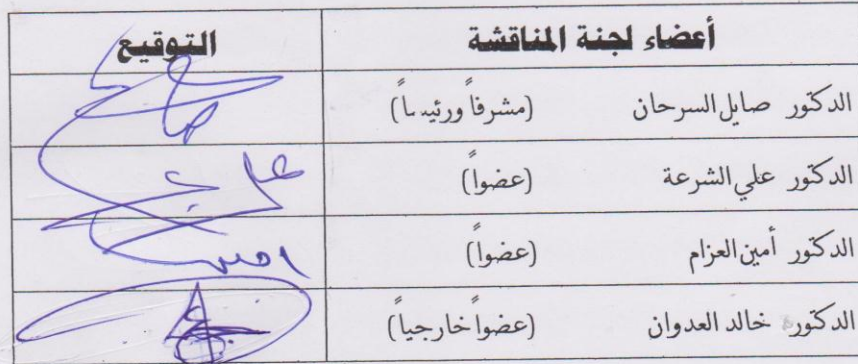 أعضاء لجنة المناقشة التوقيع
الدكتور صايل السرحان (مشرفاً ورئيساً)
الدكتور علي الشرعة (عضواً)
الدكتور أمين العزام (عضواً)
الدكتور خالد العدوان (عضواً خارجياً)